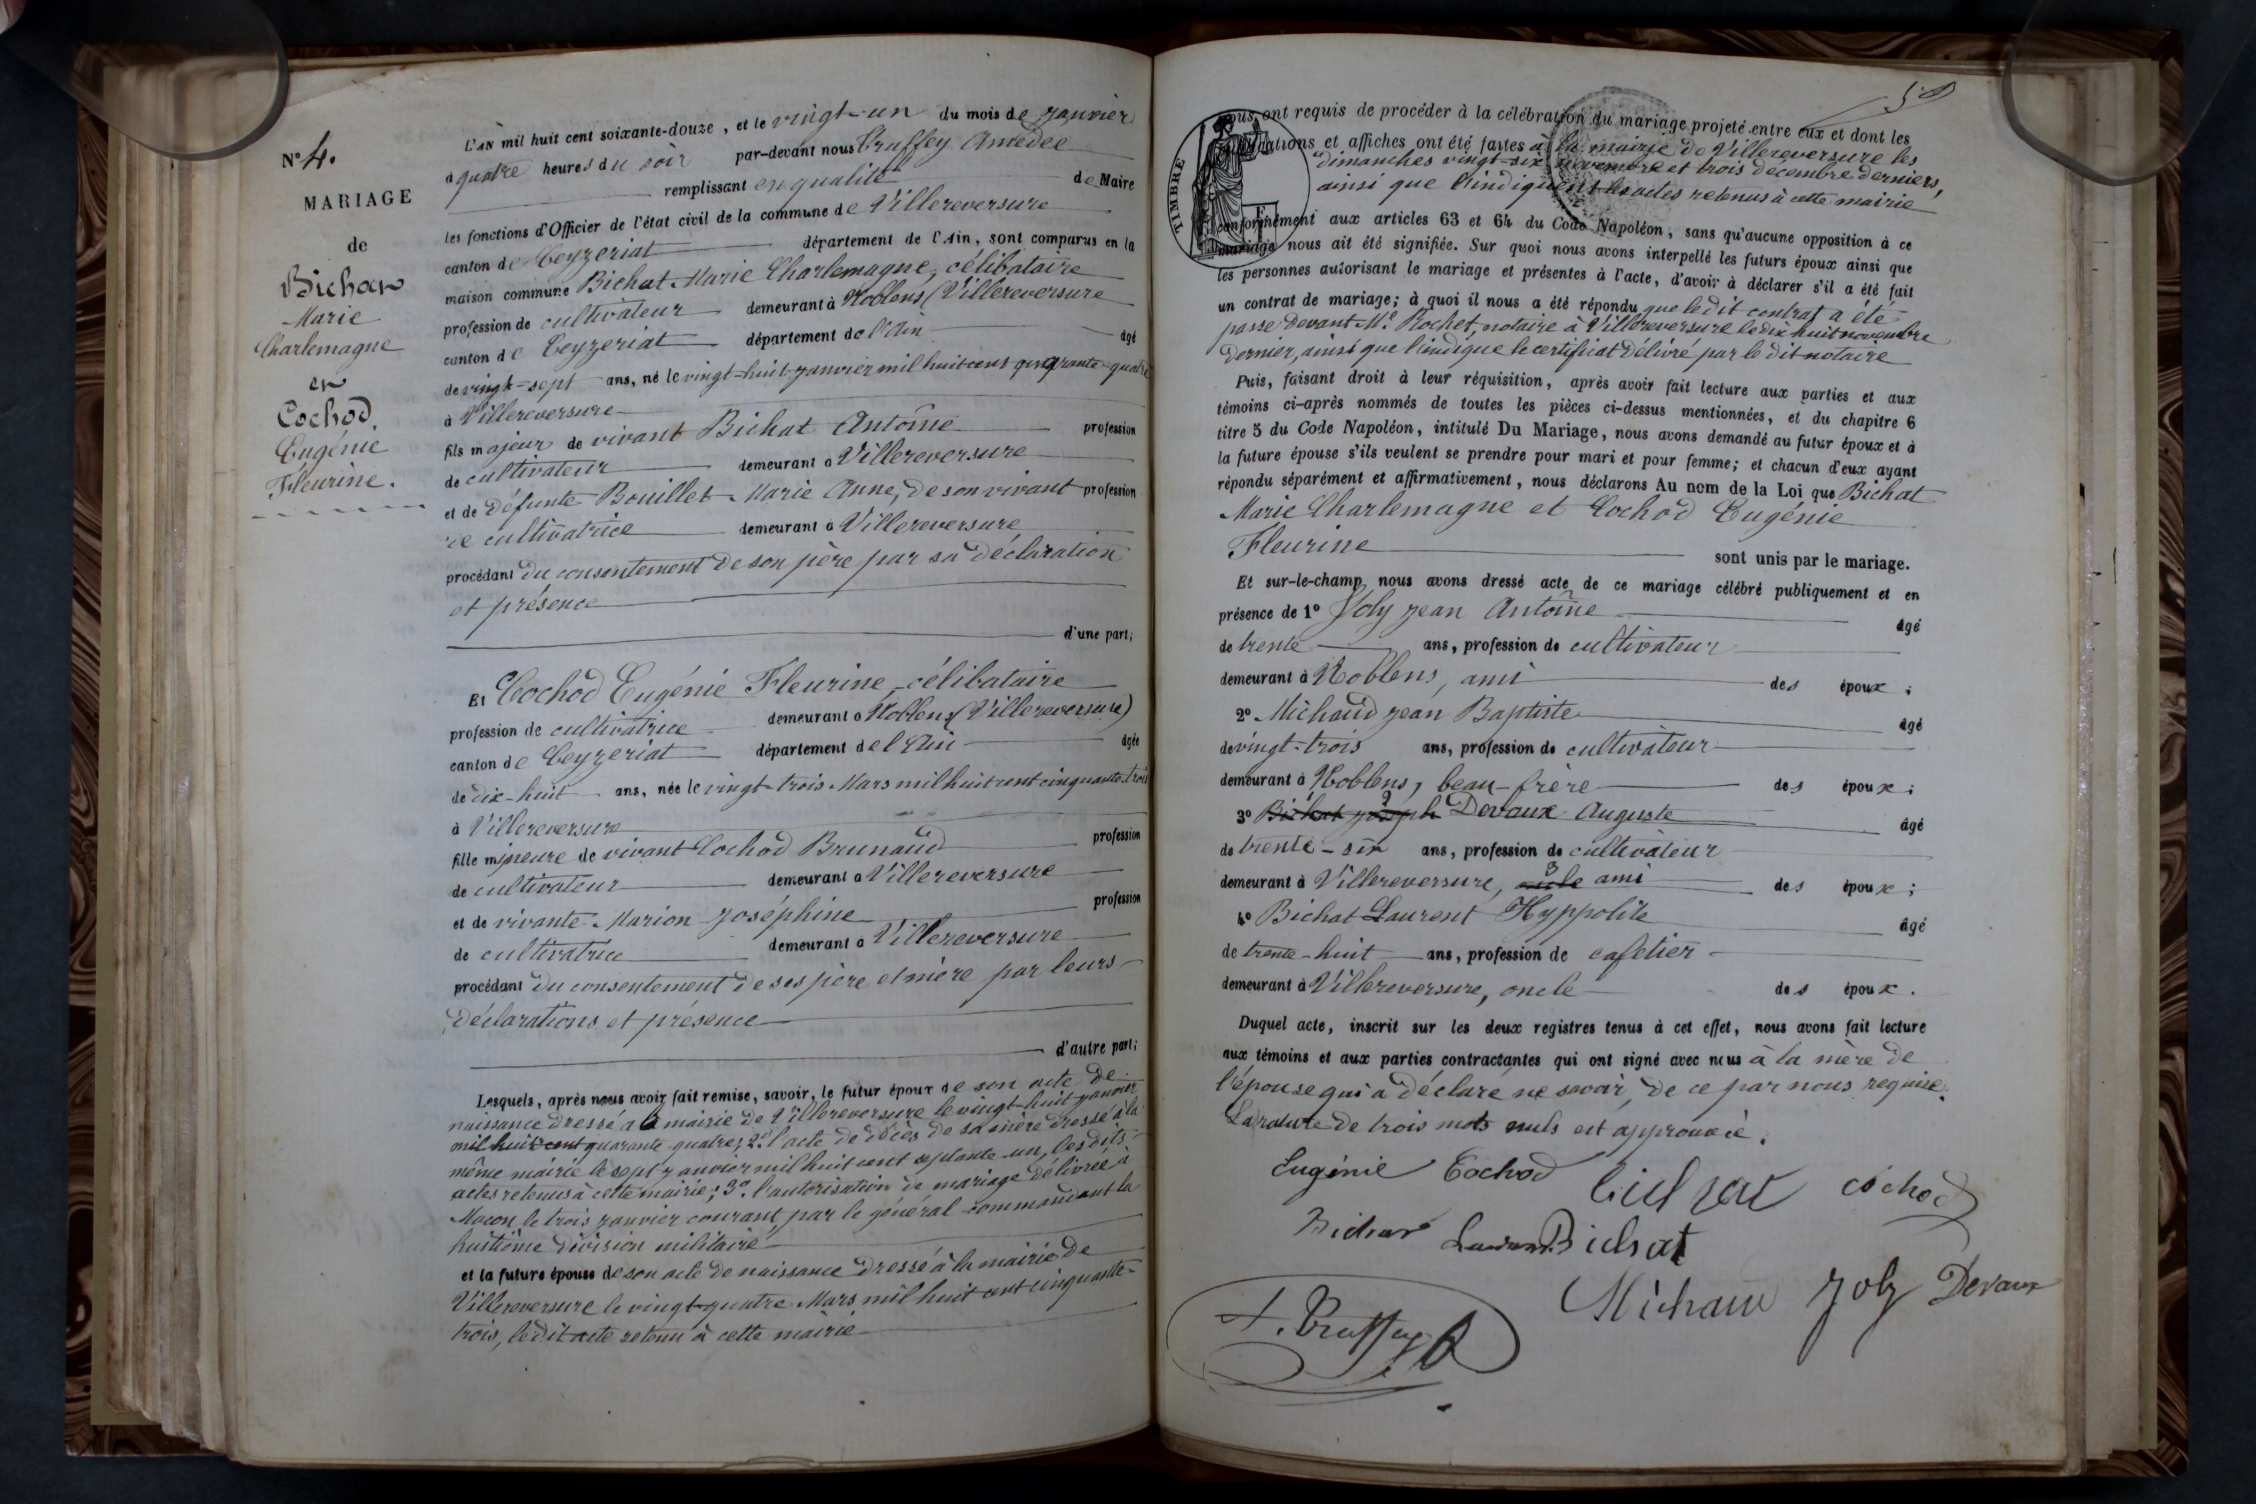 N° 4.
MARIAGE
de
Bichat
Marie
Charlemagne
et
Cochod,
Eugénie
Fleurine.
L'AN mil huit cent soixante-douze, et le vingt-un du mois de janvier
à quatre heures du soir par-devant nous Truffey Amédée
remplissant en qualité de Maire
les fonctions d'Officier de l'état civil de la commune de Villereversure
canton de Ceyzeriat département de l'Ain, sont comparus en la
maison commune Bichat Marie Charlemagne, célibataire
profession de cultivateur demeurant à Noblens (Villereversure
canton de Ceyzeriat département de l'Ain âgé
de vingt-sept ans, né le vingt-huit janvier mil huit cent quarante-quatre
à Villereversure
fils majeur de vivant Bichat Antoine profession
de cultivateur demeurant à Villereversure
et de défunte Bouillet Marie Anne, de son vivant profession
de cultivatrice demeurant à Villereversure
procédant du consentement de son père par sa déclaration
et présence
d'une part;
Et Cochod Eugénie Fleurine, célibataire
profession de cultivatrice demeurant à Noblens (Villereversure)
canton de Ceyzeriat département de l'Ain âgée
de dix-huit ans, née le vingt-trois Mars mil huit cent cinquante-trois
à Villereversure
fille mineure de vivant Cochod Brunaud profession
de cultivateur demeurant à Villereversure
et de vivante Marion Joséphine profession
de cultivatrice demeurant à Villereversure
procédant du consentement de ses père et mère par leurs
déclarations et présence
d'autre part;
Lesquels, après nous avoir fait remise, savoir, le futur époux de son acte de
naissance dressé à la mairie de Villereversure le vingt-huit janvier
mil huit cent quarante-quatre; 2° l'acte de décès de sa mère dressé à la
même mairie le sept janvier mil huit cent septante-un, les dits
actes retenus à cette mairie; 3° l'autorisation de mariage délivrée à
Macon le trois janvier courant par le général commandant la
huitième division militaire
et la future épouse de son acte de naissance dressé à la mairie de
Villereversure le vingt-quatre Mars mil huit cent cinquante-
trois, le dit acte retenu à cette mairie
50
TIMBRE
nous ont requis de procéder à la célébration du mariage projeté entre eux et dont les
publications et affiches ont été faites à la mairie de Villereversure les
dimanches vingt-six novembre et trois décembre derniers,
ainsi que l'indiquent les actes retenus à cette mairie
conformément aux articles 63 et 64 du Code Napoléon, sans qu'aucune opposition à ce
mariage nous ait été signifiée. Sur quoi nous avons interpellé les futurs époux ainsi que
les personnes autorisant le mariage et présentes à l'acte, d'avoir à déclarer s'il a été fait
un contrat de mariage; à quoi il nous a été répondu que le dit contrat a été
passé devant Me Rochet, notaire à Villereversure le dix huit novembre
dernier, ainsi que l'indique le certificat délivré par le dit notaire
Puis, faisant droit à leur réquisition, après avoir fait lecture aux parties et aux
témoins ci-après nommés de toutes les pièces ci-dessus mentionnées, et du chapitre 6
titre 5 du Code Napoléon, intitulé Du Mariage, nous avons demandé au futur époux et à
la future épouse s'ils veulent se prendre pour mari et pour femme; et chacun d'eux ayant
répondu séparément et affirmativement, nous déclarons Au nom de la Loi que Bichat
Marie Charlemagne et Cochod Eugénie
Fleurine sont unis par le mariage.
Et sur-le-champ nous avons dressé acte de ce mariage célébré publiquement et en
présence de 1° Joly Jean Antoine âgé
de trente ans, profession de cultivateur
demeurant à Noblens, ami des époux;
2° Michaud Jean Baptiste âgé
de vingt-trois ans, profession de cultivateur
demeurant à Noblens, beau-frère des époux;
3° Bichat Joseph Devaux Auguste âgé
de trente-six ans, profession de cultivateur
demeurant à Villereversure, oncle ami des époux;
4° Bichat Laurent Hyppolite âgé
de trente-huit ans, profession de cafetier
demeurant à Villereversure, oncle des époux.
Duquel acte, inscrit sur les deux registres tenus à cet effet, nous avons fait lecture
aux témoins et aux parties contractantes qui ont signé avec nous à la mère de
l'épouse qui a déclaré ne savoir, de ce par nous requise.
La rature de trois mots nuls est approuvée.
Eugénie Cochod Bichat cochod
Bichat Laurent Bichat
Michaud Joly Devaux
A. Truffey